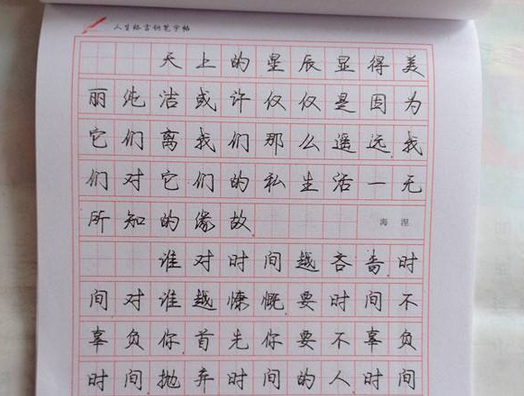 人生格言钢笔字帖
天上的星辰显得美
丽纯洁或许仅仅是因为
它们离我们那么遥远.我
们对它们的私生活一无
所知的缘故. 海涅
谁对时间越吝啬,时
间对谁越慷慨.要时间不
辜负你首先你要不辜负
时间.抛弃时间的人.时间